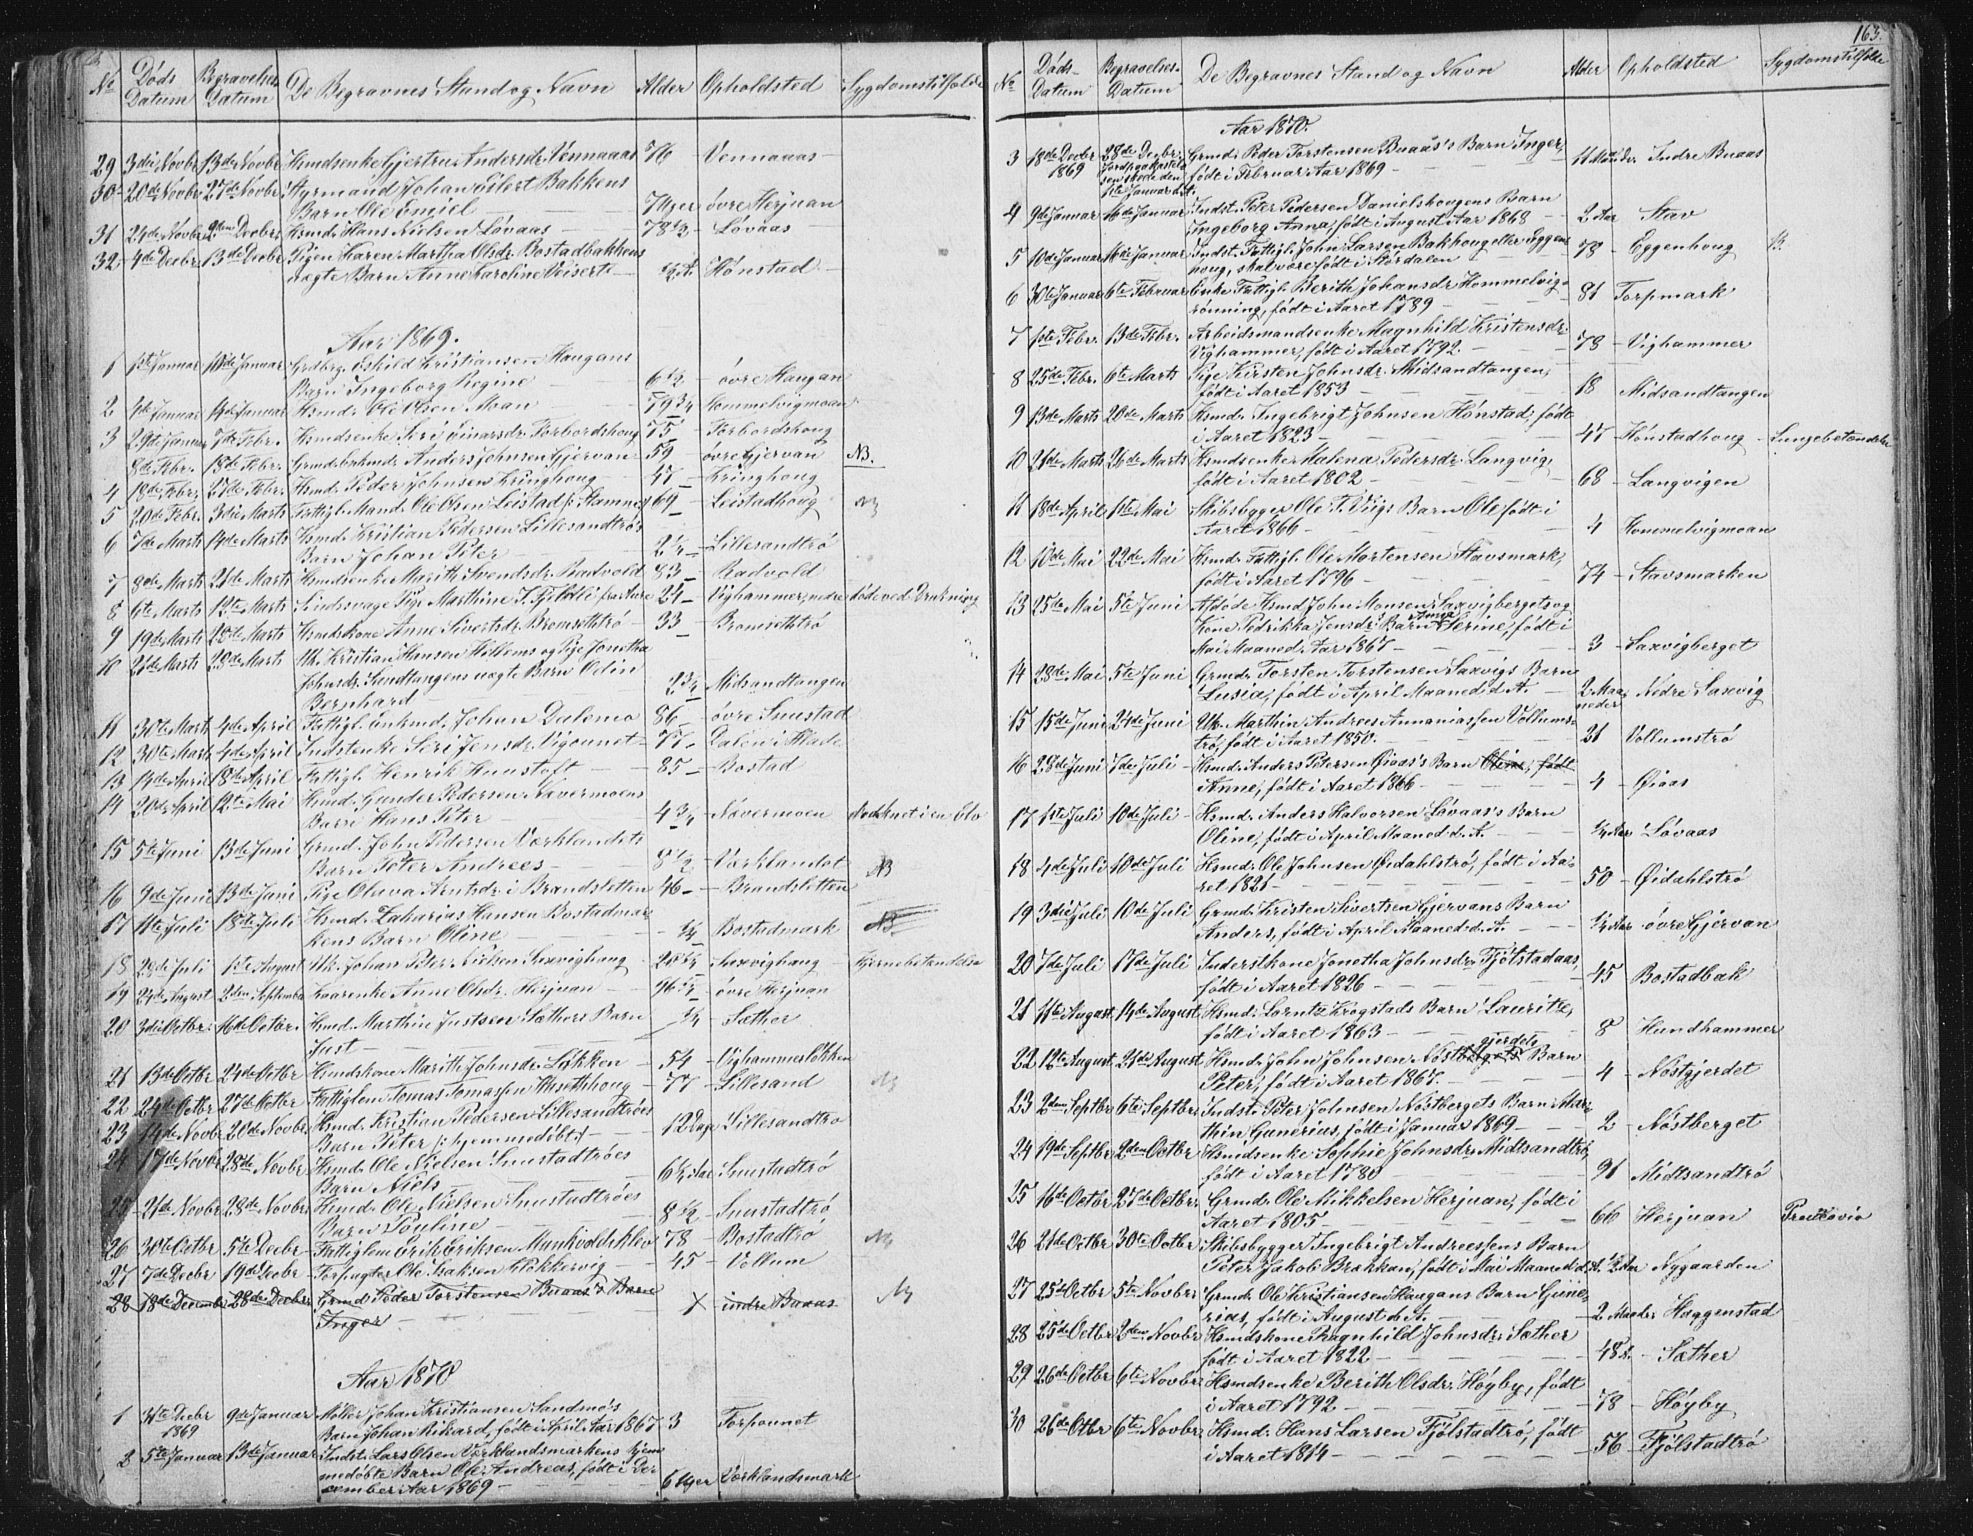 No
Døds Datum
Begravelses Datum
De Begravnes Stand og Navn
Alder
Opholdsted
Sygdomstilfælde
29 3die Novbr 13de Novbr Hsmdsenke Gjertru Andersdr. Vennaaas 76 – Vennaaas –
30 20de Novbr 27de Novbr Styrmand Johan Eilert Bakkens
Barn Ole Emiel 7 Uger øvre Herjuan
31 24de Novbr Decbr. Hsmd. Hans Nielsen Løvaas 78 1/2 – Løvaas –
32 4de Decbr. 13de Decbr Pigen Karen Martha Olsdr. Bostadbakkens
uægte Barn Anne Karoline 1/2 A. Hønstad –
Aar 1869.
1 1ste Januar Januar Grdbrg. Eskild Kristiansen Haugans
Barn Ingeborg Regine 6 1/2 – øvre Haugan
2 Januar Januar Hsmd. Ole Olsen Moan 79 3/4 Hommelvigmoan
3 29de Januar 7de Febr. Hsmdsenke Siri Einarsdr. Forbordshoug 75 – Forbordshoug
8de Febr. 13de Febr. Anders Johnsen Gjervan 59 – øvre Gjervan NB.
4 18de Febr. 27de Febr. Hsmd. Peder Johnsen Kringhoug 47 – Kringhoug
5 20de Febr. 3die Marts Fattigl. Mand Ole Olsen Leistad 69 – Leistadhoug
6 7de Marts 14de Marts Hsmd. Kristian Pedersen Lillesandtrø's
Barn Johan Peter 2 1/4 – Lillesandtrø
7 8de Marts 21de Marts Hsmdsenke Marith Svendsdr. Radvold 83 – Radvold
8 6te Marts 12te Marts Sindsvage Pige Marthine 24 – Vighammer, nedre døde ved Drukning
9 19de Marts 20de Marts Hsmdskone Anne Sivertsdr. Bromsethtrø 33 – Bromsethtrø
10 21de Marts 28de Marts Uk. Kristian Hansen og Pige Jonetha
Johnsdr. Sandtangens uægte Barn Odin
Bernhard 2 3/4 Midsandtangen
11 30te Marts 4de April Fattigl. Enkmd. Johan Dalemo 86 – øvre Snustad
12 30te Marts 4de April Indstenke Siri Jensdr. 77 – Dalen i Hlade
13 14de April 18de April Fattigl. Henrik 85 – Bostad
14 20de April 12te Mai Hsmd. Gunder Pedersen Nævermoens
Barn Hans Peter 4 3/4 – Nævermoen Druknet i en Elv
15 5te Juni 13de Juni Grmd. John Pedersen Værklandets
Barn Peter Andreas 8 1/2 – Værklandet NB
16 9de Juni 13de Juni Pige Olava Arntsdr. i Brandsletten 46 – – Brandsletten
17 11te Juli 18de Juli Hsmd. Zakarias Hansen Bostadmar-
kens Barn Oline 1/4 Bostadmark NB.
18 23de Juli 1ste August Uk. Johan Peter Nielsen Saxvighaug 20 1/4 – Saxvighaug – Hjernebetændelse
19 24de August 2den Septembr Anne Olsdr. Herjuan 96 3/4 – øvre Herjuan
20 3die Octbr. Octbr. Hsmd. Marthin Justsen Sæthers Barn
Just 1/4 – Sæther
21 13de Octbr 24de Octbr Hsmdskone Marith Johnsdr. Løkken 54 – Vighammerløkken
22 24de Octbr 27de Octbr Fattiglem Tomas Tomassen 77 – Lillesand
23 14de Novbr. 20de Novbr. Hsmd. Kristian Pedersen Lillesandtrøes
Barn Peter /:hjemmedøbt:/ 12 Dage Lillesandtrø
24 17de Novbr 28de Novbr Hsmd. Ole Nielsen Snustadtrøes
Barn Niels 6 1/2 Aar Snustadtrø
25 21de Novbr 28de Novbr Hsmd. Ole Nielsen Snustadtrøes
Barn Pouline 8 1/2 – Snustadtrø
26 30te Octbr 5te Decbr Fattiglem Erik Eriksen 78 – Bostadtrø
27 7de Decbr 19de Decbr Forpagter Ole Isaksen Flikkervig 45 – Vollum
28 18de December 28de Decber Grmd Peder Torstensen Buaas's Barn
Inger X indre Buaas
Aar 1870
1 31te Decbr 9de Januar Møller Johan Kristiansen Sandmo's
1869 Barn Johan Rikard, født i April Aar 1867 3 Torpounet
2 5te Januar 13de Januar Indst. Lars Olsen Værklandsmarkens hjem-
medøbte Barn Ole Andreas, født i De-
cember Aar 1869 – 6 Uger Værklandsmark
163.
No
Døds- Datum
Begravelses- Datum
De Begravnes Stand og Navn
Alder
Opholdsted
Sygdomstilfælde
Aar 1870.
3 18de Decbr 28de Decbr. Grmd. Peder Torstensen Buaas's Barn Inger,
1869 født i Februar Aar 1869 – 11 Maaneder Indre Buaas
1ste Januar d. A.
4 9de Januar 16de Januar Indst. Peter Pedersen Danielshougens Barn
Ingeborg Anna, født i August Aar 1868 – 2 Aar – Stav
5 10de Januar 16de Januar Indst. Fattigl. John Larsen Bakhoug eller Eggen-
houg, skal være født i Størdalen 78 – Eggenhoug
6 30te Januar 6te Februar Enke Fattigl. Berith Johansdr. Hommelvigs-
rønning, født i Aaret 1789 – 81 Torpmark
7 1ste Febr. 13de Febr. Arbeidsmandsenke Magnhild Kristensdr.
Vighammer, født i Aaret 1792. – 78 – Vighammer
8 25de Febr. 6te Marts Pige Kirsten Johnsdr. Midsandtangen,
født i Aaret 1853 18 Midsandtangen
9 13de Marts 20de Marts Hsmd. Ingebrigt Johnsen Hønstad, født
i Aaret 1823 – 47 – Hønstadhoug – Lungebetændelse
10 21de Marts 26de Marts Hsmdsenke Malena Pedersdr. Langvig,
født i Aaret 1802 – 68 – Langvigen
11 18de April 1ste Mai Skibsbygger Ole T. Viigs Barn Ole, født i
Aaret 1866 – 4 Hommelvigmoan
12 10de Mai 22de Mai Hsmd. Fattigl. Ole Mortensen Stavsmark,
født i Aaret 1796 – 74 – Stavsmarken
13 25de Mai 5te Juni Afdøde Hsmd John Monsen Saxvigbergets og
Kone Fedrikka Jensdr. Barn Anna Serine, født i
Mai Maaned Aar 1867 – 3 – Saxvigberget
14 28de Mai 5te Juni Grmd. Torsten Torstensen Saxvigs Barn
Lusia, født i April Maaned d. A. – 2 Maa-
neder Nedre Saxvig
15 15de Juni 24de Juni Uk. Marthin Andreas Annaniassen Vollums-
trø, født i Aaret 1850. – 21 Vollumstrø
16 28de Juni 7de Juli – Hsmd. Anders Petersen Øiaas's Barn Oline, født
Anne, født i Aaret 1866 – 4 – Øiaas
17 1ste Juli 10de Juli – Hsmd. Anders Halvorsen Løvaas's Barn
Oline, født i April Maaned d. A. 1/4 Aar Løvaas
18 4de Juli 10de Juli Hsmd. Ole Johnsen Øidahlstrø, født i Aa-
ret 1821 – 50 – Øidahlstrø
19 3die Juli 10de Juli Grmd. Kristen Sivertsen Gjervans Barn
Anders, født i April Maaned d. A. – 1/4 Aar øvre Gjervan
20 7de Juli 17de Juli Inderstkone Jonetha Johnsdr. Fjølstadaas,
født i Aaret 1826 – 45 Bostadbak
21 11te August 14de August Hsmd. Lorntz Krogstads Barn Lauritz,
født i Aaret 1863 – 8 Hundhammer
22 12te August 21de August Hsmd. John Johnsen Nøstbergets gjerdets Barn
Peter, født i Aaret 1867. 4 – Nøstgjerdet
23 2den Septbr 6te Septbr. Indst. Peter Johnsen Nøstbergets Barn Mar-
thin Gunerius, født i Januar 1869 – 2 – Nøstberget
24 19de Septbr 2den Octbr Hsmdsenke Sophie Johnsdr. Midtsandtrø,
født i Aaret 1780 91 Midtsandtrø
25 16de Octbr 27de Octbr. Grmd. Ole Mikkelsen Herjuan, født i
Aaret 1805 – 66 Herjuan
26 21de Octbr 30te Octbr Skibsbygger Ingebrigt Andreessens Barn
Peter Jakob Brækkan, født i Mai Maaned d. A. 1/2 Aar Nygaarden
27 25de Octbr 5te Novbr. Grmd. Ole Kristiansen Haugans Barn Gune-
rius, født i August d. A. – 2 Maader Haggenstad
28 25de Octbr 2den Novbr Hsmdskone Ragnhild Johnsdr. Sæther
født i Aaret 1822 – 48 – Sæther
29 26de Octbr 6te Novbr. Hsmdsenke Berith Olsdr. Høyby, født
i Aaret 1792 – 78 – Høyby
30 26de Otbr 6te Novbr Hsmd. Hans Larsen Fjølstadtrø, født
i Aaret 1814 – 56 – Fjølstadtrø